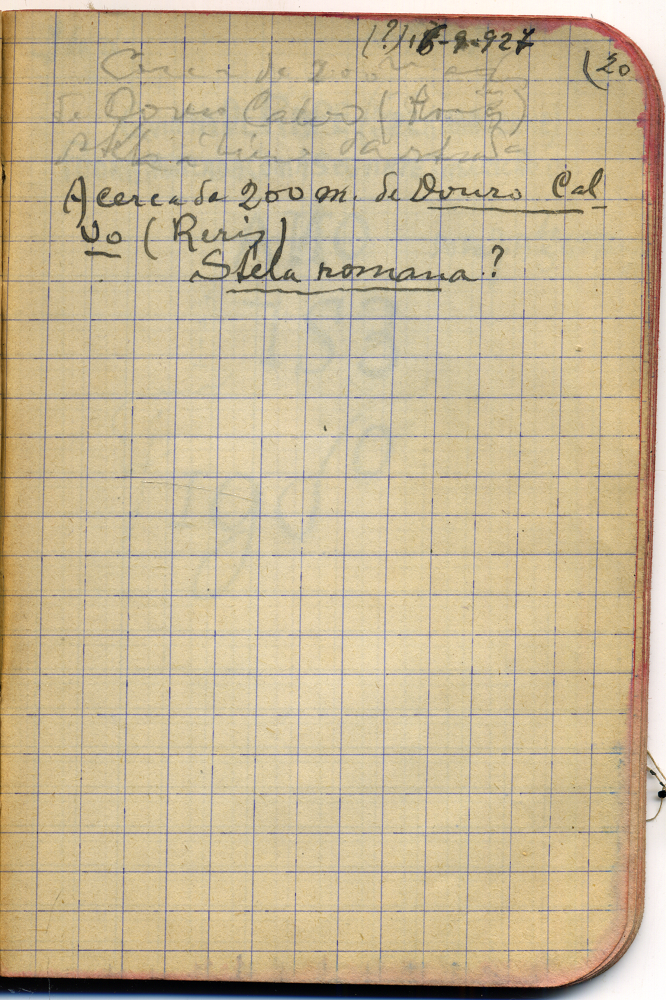 (?) 16-9-927
(20
Cerca de 200m
de Douro Calvo (Reriz)
Stela á beira da estrada
A cerca de 200 m. de Douro Cal
vo (Reriz)
Stela romana?